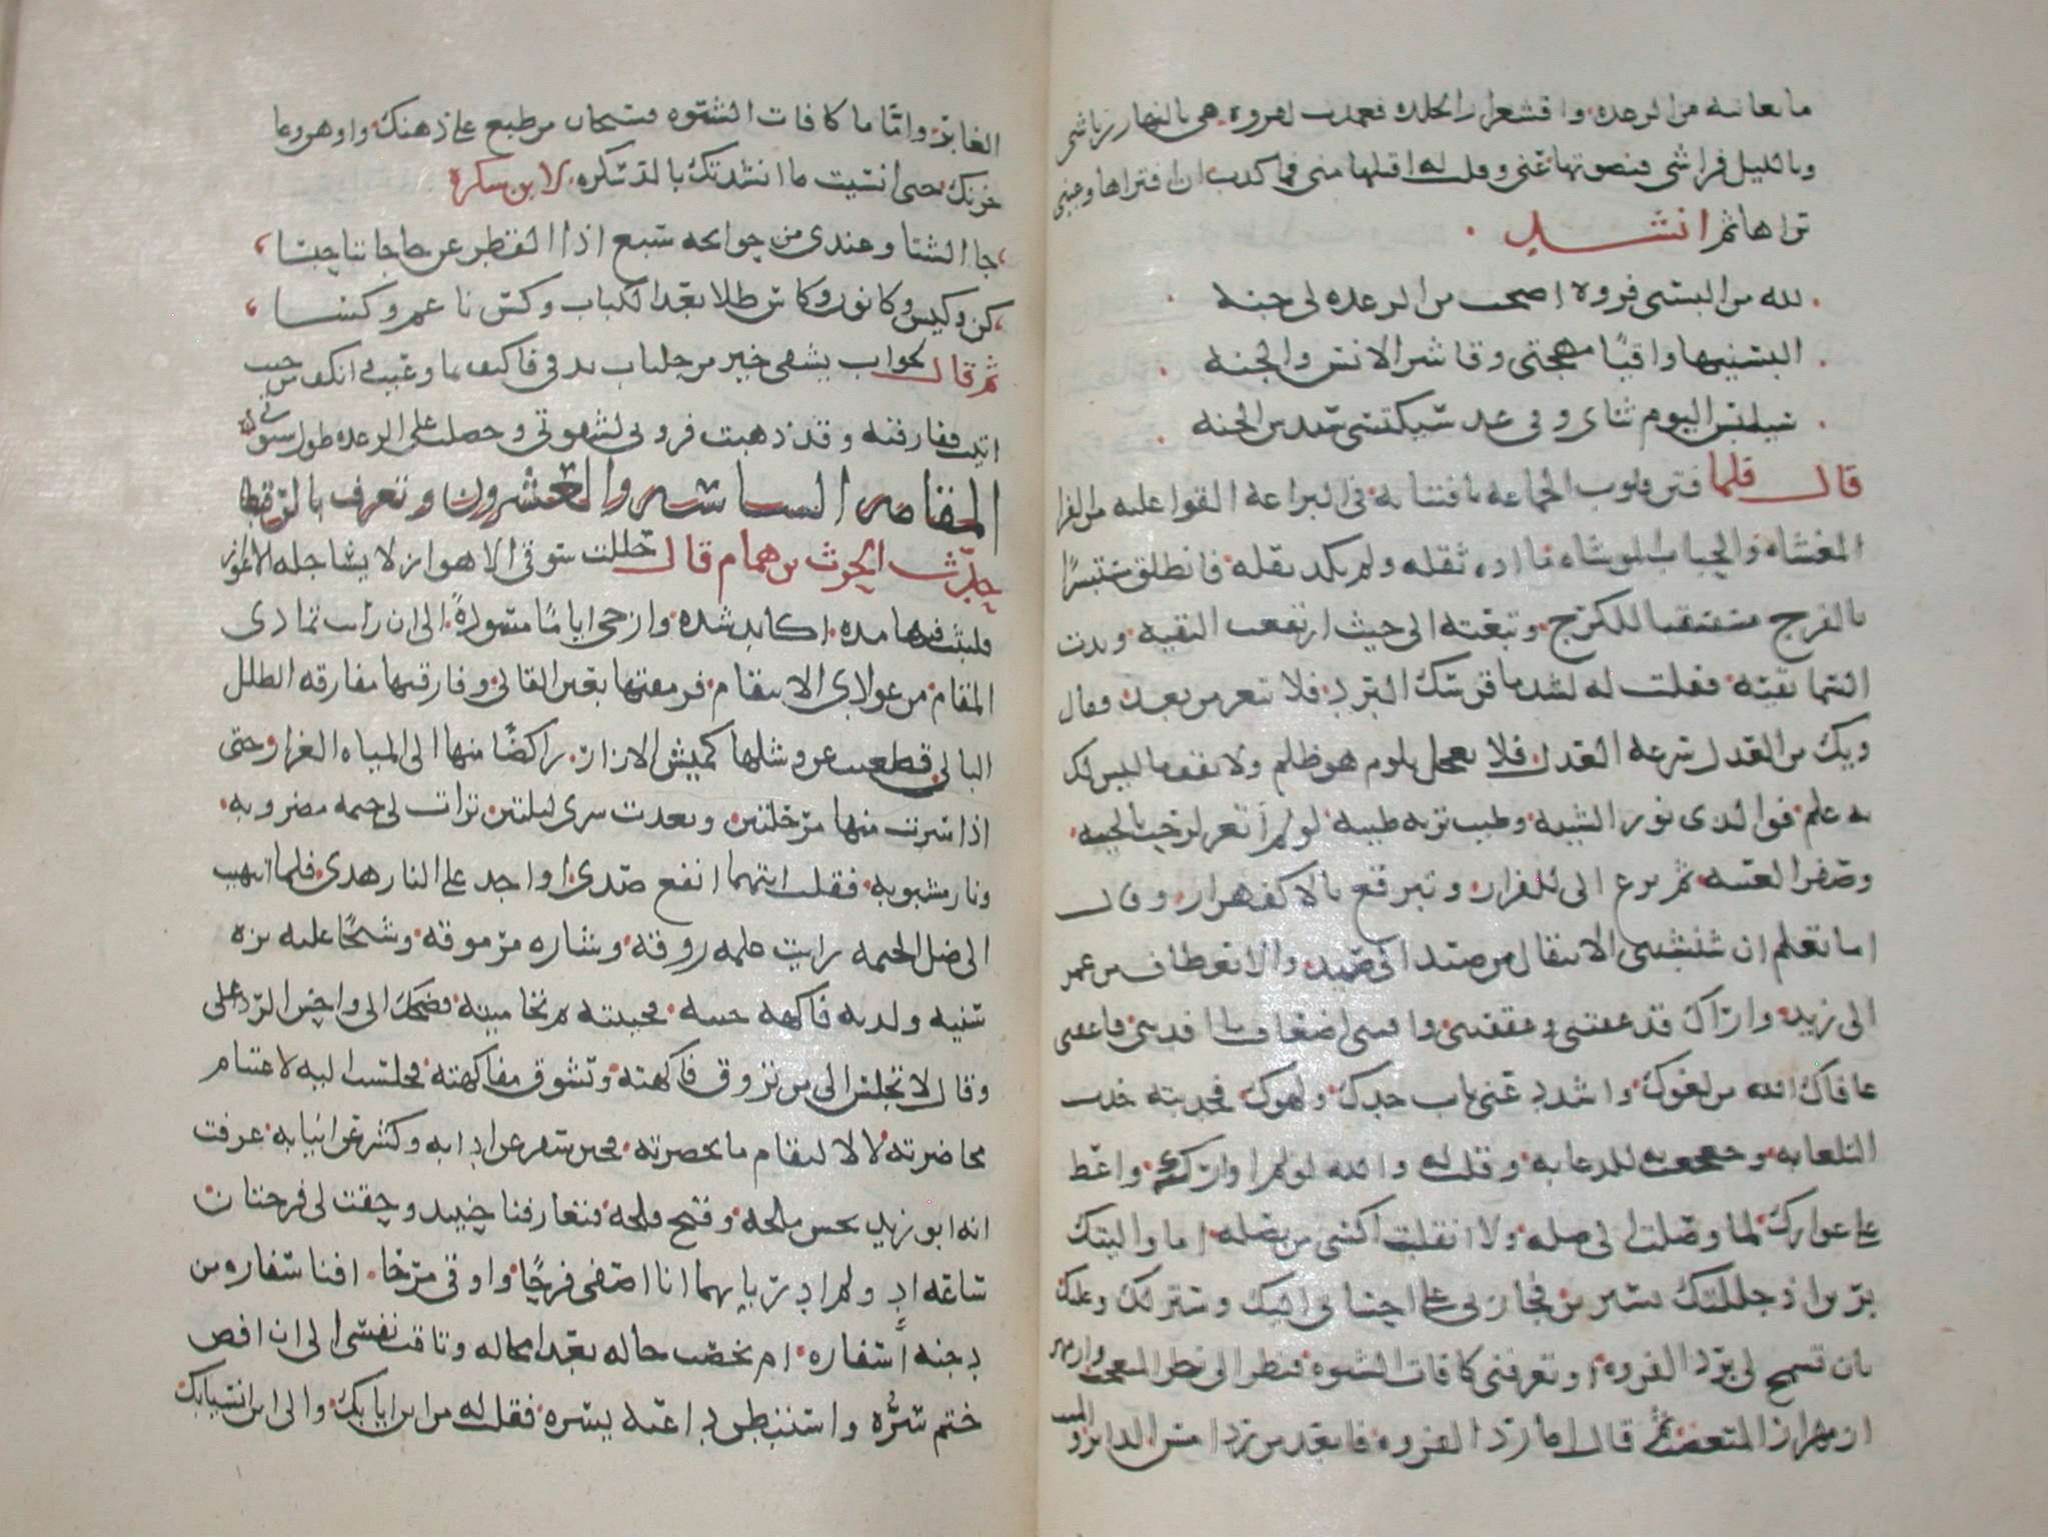 ما يعانيه من الرعده واقشعرار الجلده فعمدت لفروه هي بالنهار رياشي
وبالليل فراشي فنضوتها عني وقلت له اقبلها مني فما كذب ان افتراها وعيني
تراها ثم انشد
لله من البسني فروة اضحت من الرعده لي جنه
البسنيها واقيًا مهجتي وقا شر الانس والجنه
سيلبس اليوم ثناى وفي غد سيكتسي سندس الجنه
قال فلما فتن قلوب الجماعه بافتنانه في البراعه القوا عليه من الفرا
المغشاه والجباب الموشاه ما اده ثقله ولم يكد يقله فانطلق مستبشرًا
بالفرج مستسقيا للكرج وتبعته الى حيث ارتفعت التقيه وبدت
السما نقيه فقلت له لشد ما قرسك البرد فلا تتعر من بعد فقال
ويك من العدل سرعة العذل فلا تعجل بلوم هو ظلم ولا تقف ما ليس لك
به علم فوالذى نور الشيبه وطيب تربه طيبه لو لم اتعر لرحت بالخيبه
وصفر العيبه ثم نزع الى الفرار وتبرقع بالاكفهرار وقال
اما تعلم ان شنشنتي الانتقال من صيد الى صيد والانعطاف من عمرو
الى زيد واراك قد عقتني وعققتني وافتني اضعاف ما افدتني فاعفني
عافاك الله من لغوك واسدد عني باب جدك ولهوك فجبذته جبذ
التلعابه وجعجعت به للدعابه وقلت له والله لو لم اوارك واغط
على عوارك لما وصلت الى صله ولا انقلبت اكسى من بصله
بان تسمح لي برد الفروه او تعرفني كافات الشتوه فنظر الى نظر المتعجب وازمهر
ازمهرار المتغضب ثم قال اما رد الفروه فابعد من رد امس الدابر والميت
الغابر واما كافات الشتوه فسبحان من طبع على ذهنك واوهى وعا
خزنك حتى انسيت ما انشدتك بالدسكره لابن سكرة
جا الشتا وعندى من حوائجه سبع اذا القطر عن حاجاتنا حبسا
كن وكيس وكانون وكاس طلا بعد الكباب وكس ناعم وكسا
ثم قال لجواب يشفي خير من جلباب يدفي فاكتف بما وعيت وانكف من حيث
اتيت ففارقته وقد ذهبت فروتي لشقوتي وحصلت على الرعده طول شتوتي
المقامه السادسه والعشرون وتعرف بالرقطا
حدث الحرث بن همام قال حللت سوقي الاهواز لابسًا حلة الاعواز
فلبثت فيها مده اكابد شده وازجي ايامًا مسودةً الى ان رايت تمادى
المقام من عوادي الانتقام فرمقتها بعين القالي وفارقتها مفارقه الطلل
البالي فظعنت عن وشلها كميش الازار راكضًا منها الى المياه الغزار حتى
اذا سرت منها مرحلتين وبعدت سرى ليلتين تراات لي خيمه مضروبه
ونار مشبوبه فقلت ايتهما انقع صدى او اجد على النار هدى فلما انتهيت
الى ظل الخيمه رايت غلمه روقه وشاره مرموقه وشيخًا عليه بزه
سنيه ولديه فاكهه جنيه فحييته ثم تحاميته فضحك الى واحسن الرد على
وقال الا تجلس الى من تروق فاكهته وتشوق مفاكهته فجلست اليه لاغتنام
محاضرته لا لالتقام ما بحضرته فحين سفر عن ادابه وكشر عن انيابه عرفت
انه ابو زيد بحسن ملحه وقبح قلحه فتعارفنا حينيد وحفت لي فرحتان
ساعة اذ ولم ادر بايهما انا اصفى فرحًا واوفى مرحًا ابناسفاره من
دجنه اسفاره ام بخصب حاله بعد امحاله وتاقت نفسي الى ان افض
ختم سره واستبطن داعية يسره فقلت له من اين ايابك والى اين انسيابك